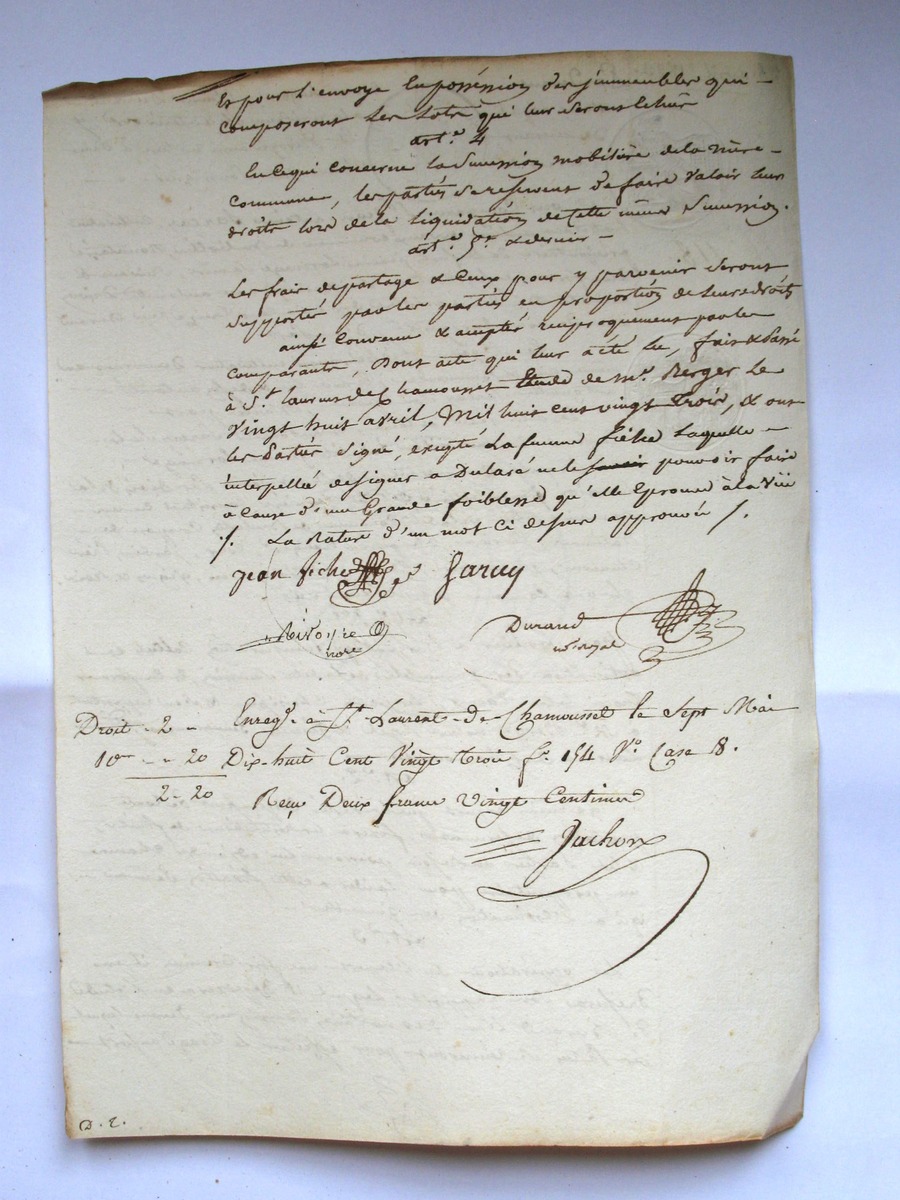 Et pour l'envoye En posséssion des jmmeubles qui
Composeront les Lots qui leur seront Echus
art.e 4
En Ce qui concerne la Succession mobilière de la mère
Commune, les parties se reservent de faire Valoir leurs
droits lors de la liquidation de Cette même Succession.
art.e 5.e & dernier
Les frais de partage & Ceux pour y parvenir seront
Supportés par les parties en proportion de leurs droits
ainsi Convenu & accepté reciproquement par les
Comparants, Dont acte qui leur a été Lu, fait & Passé
à S.t Laurent de Chamousset Etude de M.e Berger Le
Vingt huit avril, Mil huit cent vingt trois, & ont
les Parties Signé, excepté La femme fiche Laquelle
interpellée de signer a Déclaré ne le savoir pouvoir faire
à Cause d'une Grande foiblesse qu'elle Eprouve à la Vüe
/. La Rature d'un mot Ci dessus approuvée /.
Jean fiche
Rivoyre
nore
Durand
no royal
Droit - 2 -
Enreg.é à S.t Laurent-de-Chamousset le Sept Mai
10e - - 20
Dix-huit Cent Vingt trois f.o 154 V.o Case 8.
2 - 20
Reçu Deux francs Vingt Centimes
Jachon